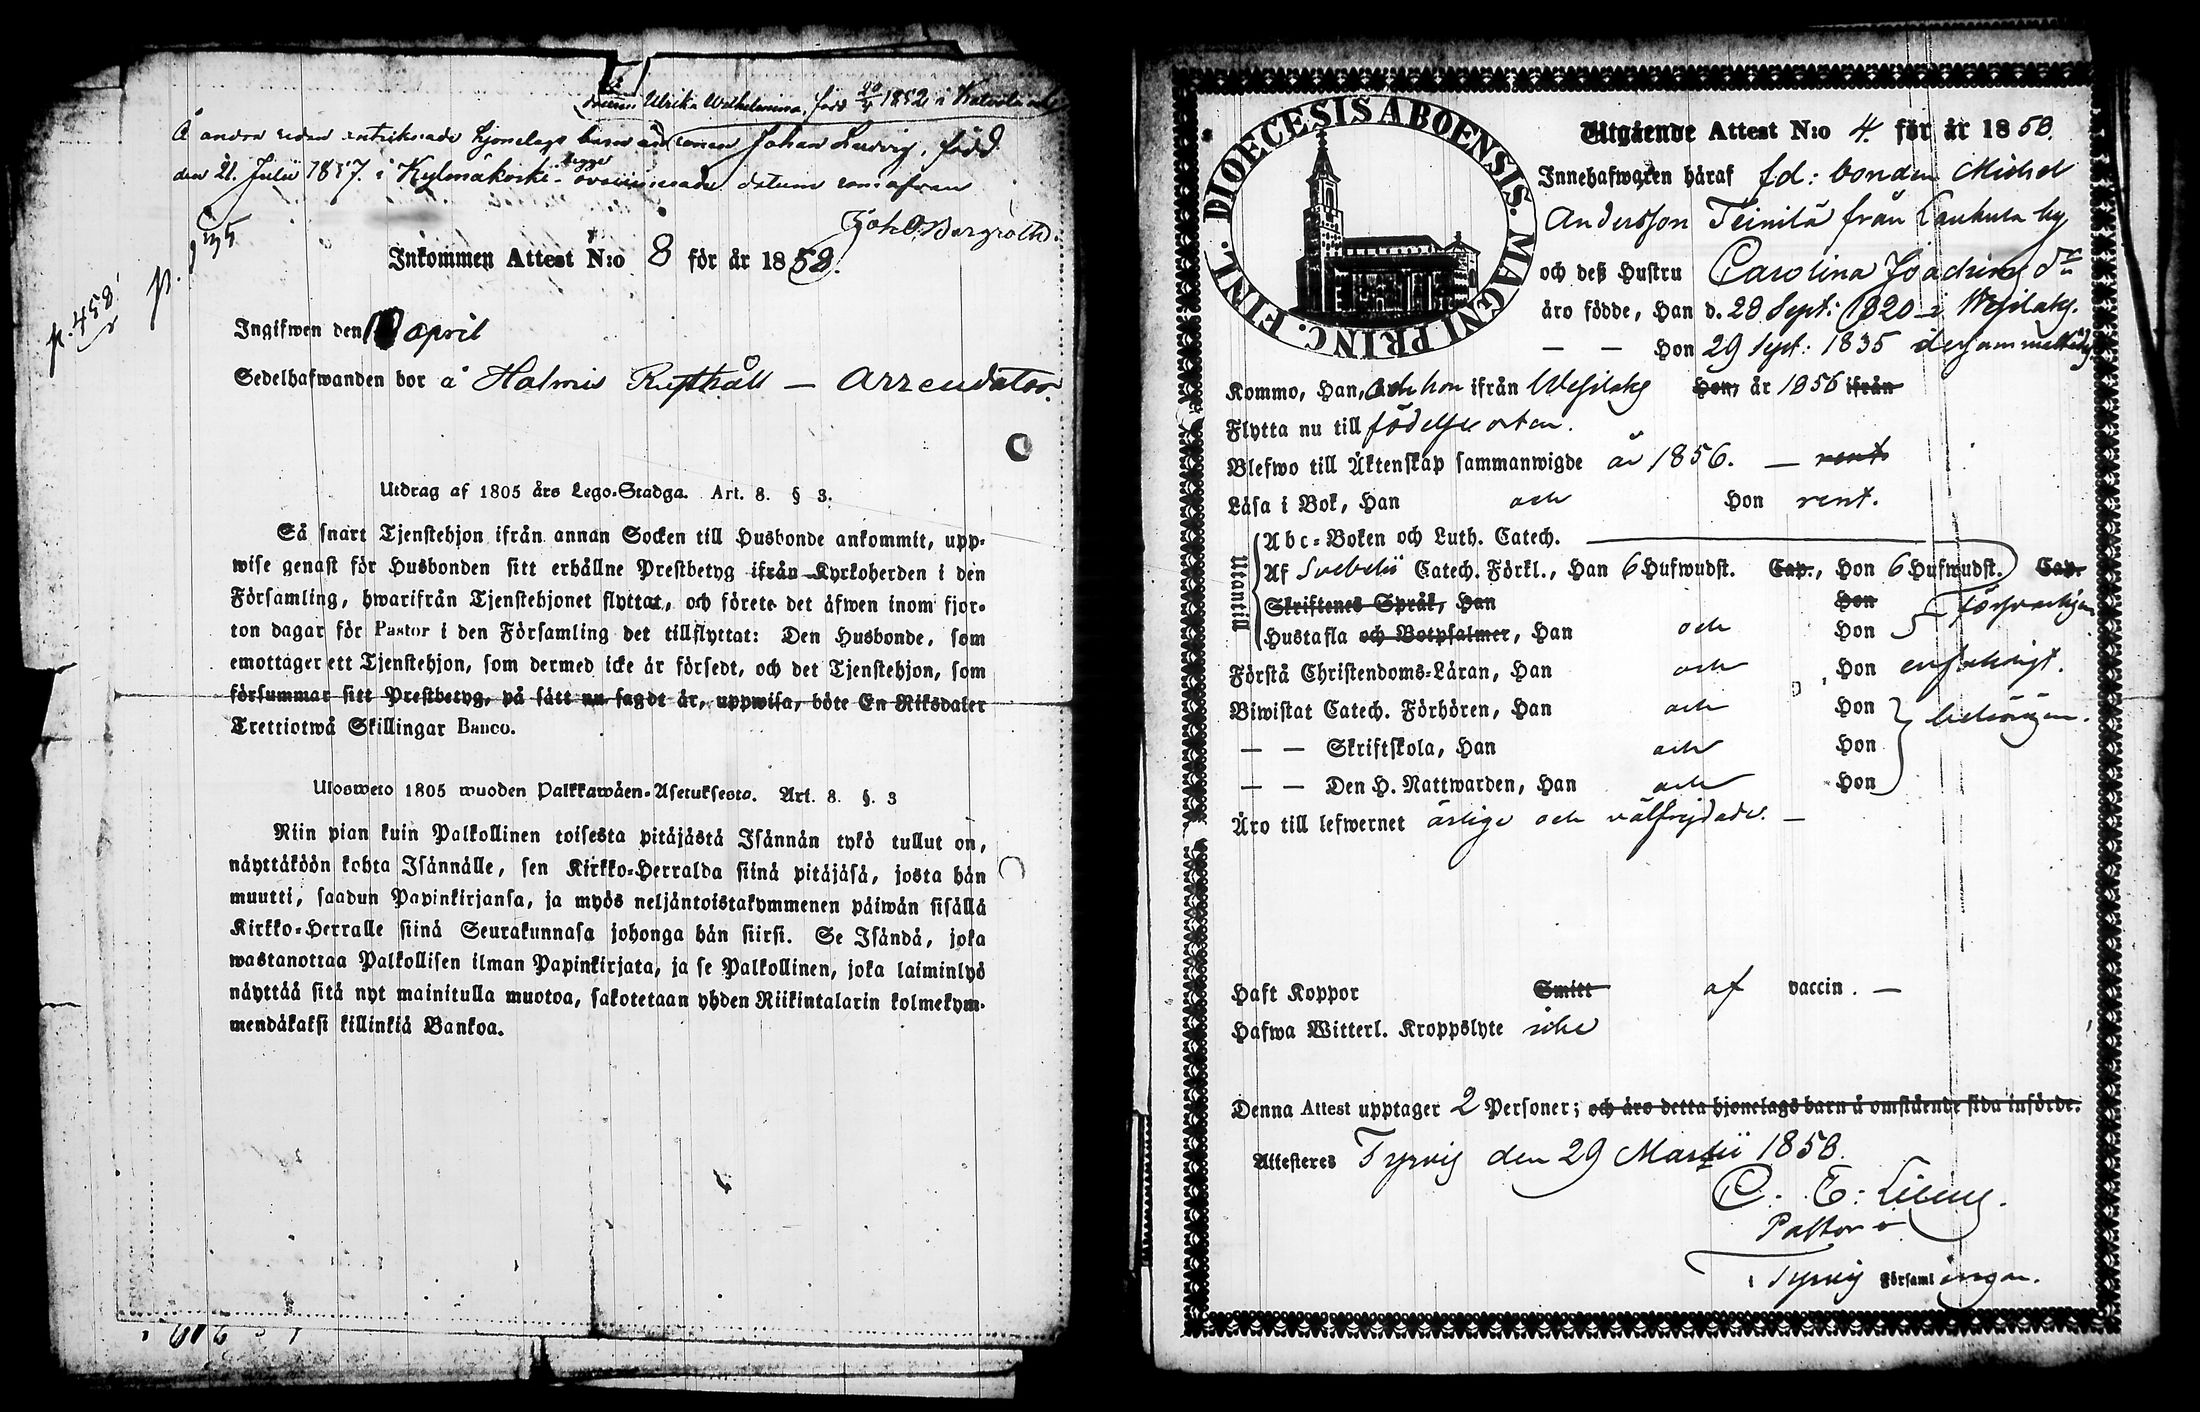 Ulrika Wilhelmina, född 1852 i
Å andra sidan antecknade hjonelags barn äro sonen Johan Ludvig, född
den 21. Julii 1857. i Kylmäkoski. datum som ofvan
Joh. O. Bergroth.
p. 458
p.
Inkommen Attest N:o 8 för år 1858.
Ingifwen den april
Sedelhafwanden bor å Halmis Rusthåll — Arrendator.
Utdrag af 1805 års Lego-Stadga. Art. 8. § 3.
Så snart Tjenstehjon ifrån annan Socken till Husbonde ankommit, upp-
wise genast för Husbonden sitt erhållne Prestbetyg ifrån Kyrkoherden i den
Församling, hwarifrån Tjenstehjonet flyttat, och förete det äfwen inom fjor-
ton dagar för Pastor i den Församling det tillflyttat: Den Husbonde, som
emottager ett Tjenstehjon, som dermed icke är försedt, och det Tjenstehjon, som
försummar sitt Prestbetyg, på sätt nu sagdt är, uppwisa, böte En Riksdaler
Trettiotwå Skillingar Banco.
Ulosweto 1805 wuoden Palkkawäen-Asetuksesta. Art. 8. §. 3
Niin pian kuin Palkollinen toisesta pitäjästä Isännän tykö tullut on,
näyttäköön kohta Isännälle, sen Kirkko-Herralda siinä pitäjäsä, josta hän
muutti, saadun Papinkirjansa, ja myös neljäntoistakymmenen päiwän sisällä
Kirkko-Herralle siinä Seurakunnasa johonga hän siirsi. Se Isändä, joka
wastanottaa Palkollisen ilman Papinkirjata, ja se Palkollinen, joka laiminlyö
näyttää sitä nyt mainitulla muotoa, sakotetaan yhden Riikintalarin kolmekym-
mendäkaksi killinkiä Bankoa.
DIOECESIS ABOENSIS. MAGNI PRINC. FINL.
Utgående Attest N:o 4. för år 1858.
Innehafwaren häraf fd: bonden Michel
Andersson Teinilä från Kaukula by
och deß Hustru Carolina Joachims dr
äro födde, Han d. 28 Sept: 1820 i Wesilaks.
— — Hon 29 Sept: 1835 i dersammastädes
Kommo, Han, och hon ifrån Wesilaks Hon, år 1856 ifrån
Flytta nu till födelseorten.
Blefwo till Äktenskap sammanwigde år 1856. — rent
Läsa i Bok, Han och Hon rent.
Utantill
Abc-Boken och Luth. Catech.
Af Svebelii Catech. Förkl., Han 6 Hufwudst. Cap., Hon 6 Hufwudst. Cap.
Skriftenes Språk, Han Hon
Hustafla och Botpsalmer, Han och Hon
Förstå Christendoms-Läran, Han och, Hon enfaldigt.
Biwistat Catech. Förhören, Han och Hon behörigen.
— — Skriftskola, Han och Hon
— — Den H. Nattwarden, Han och Hon
Äro till lefwernet ärlige och välfrejdade. —
Haft Koppor Smitt af vaccin. —
Hafwa Witterl. Kroppslyte icke
Denna Attest upptager 2 Personer; och äro detta hjonelags barn å omstående sida införde.
Attesteres Tyrvis den 29 Martii 1858.
C. E:
Pastor
i Tyrvis Församlingar.